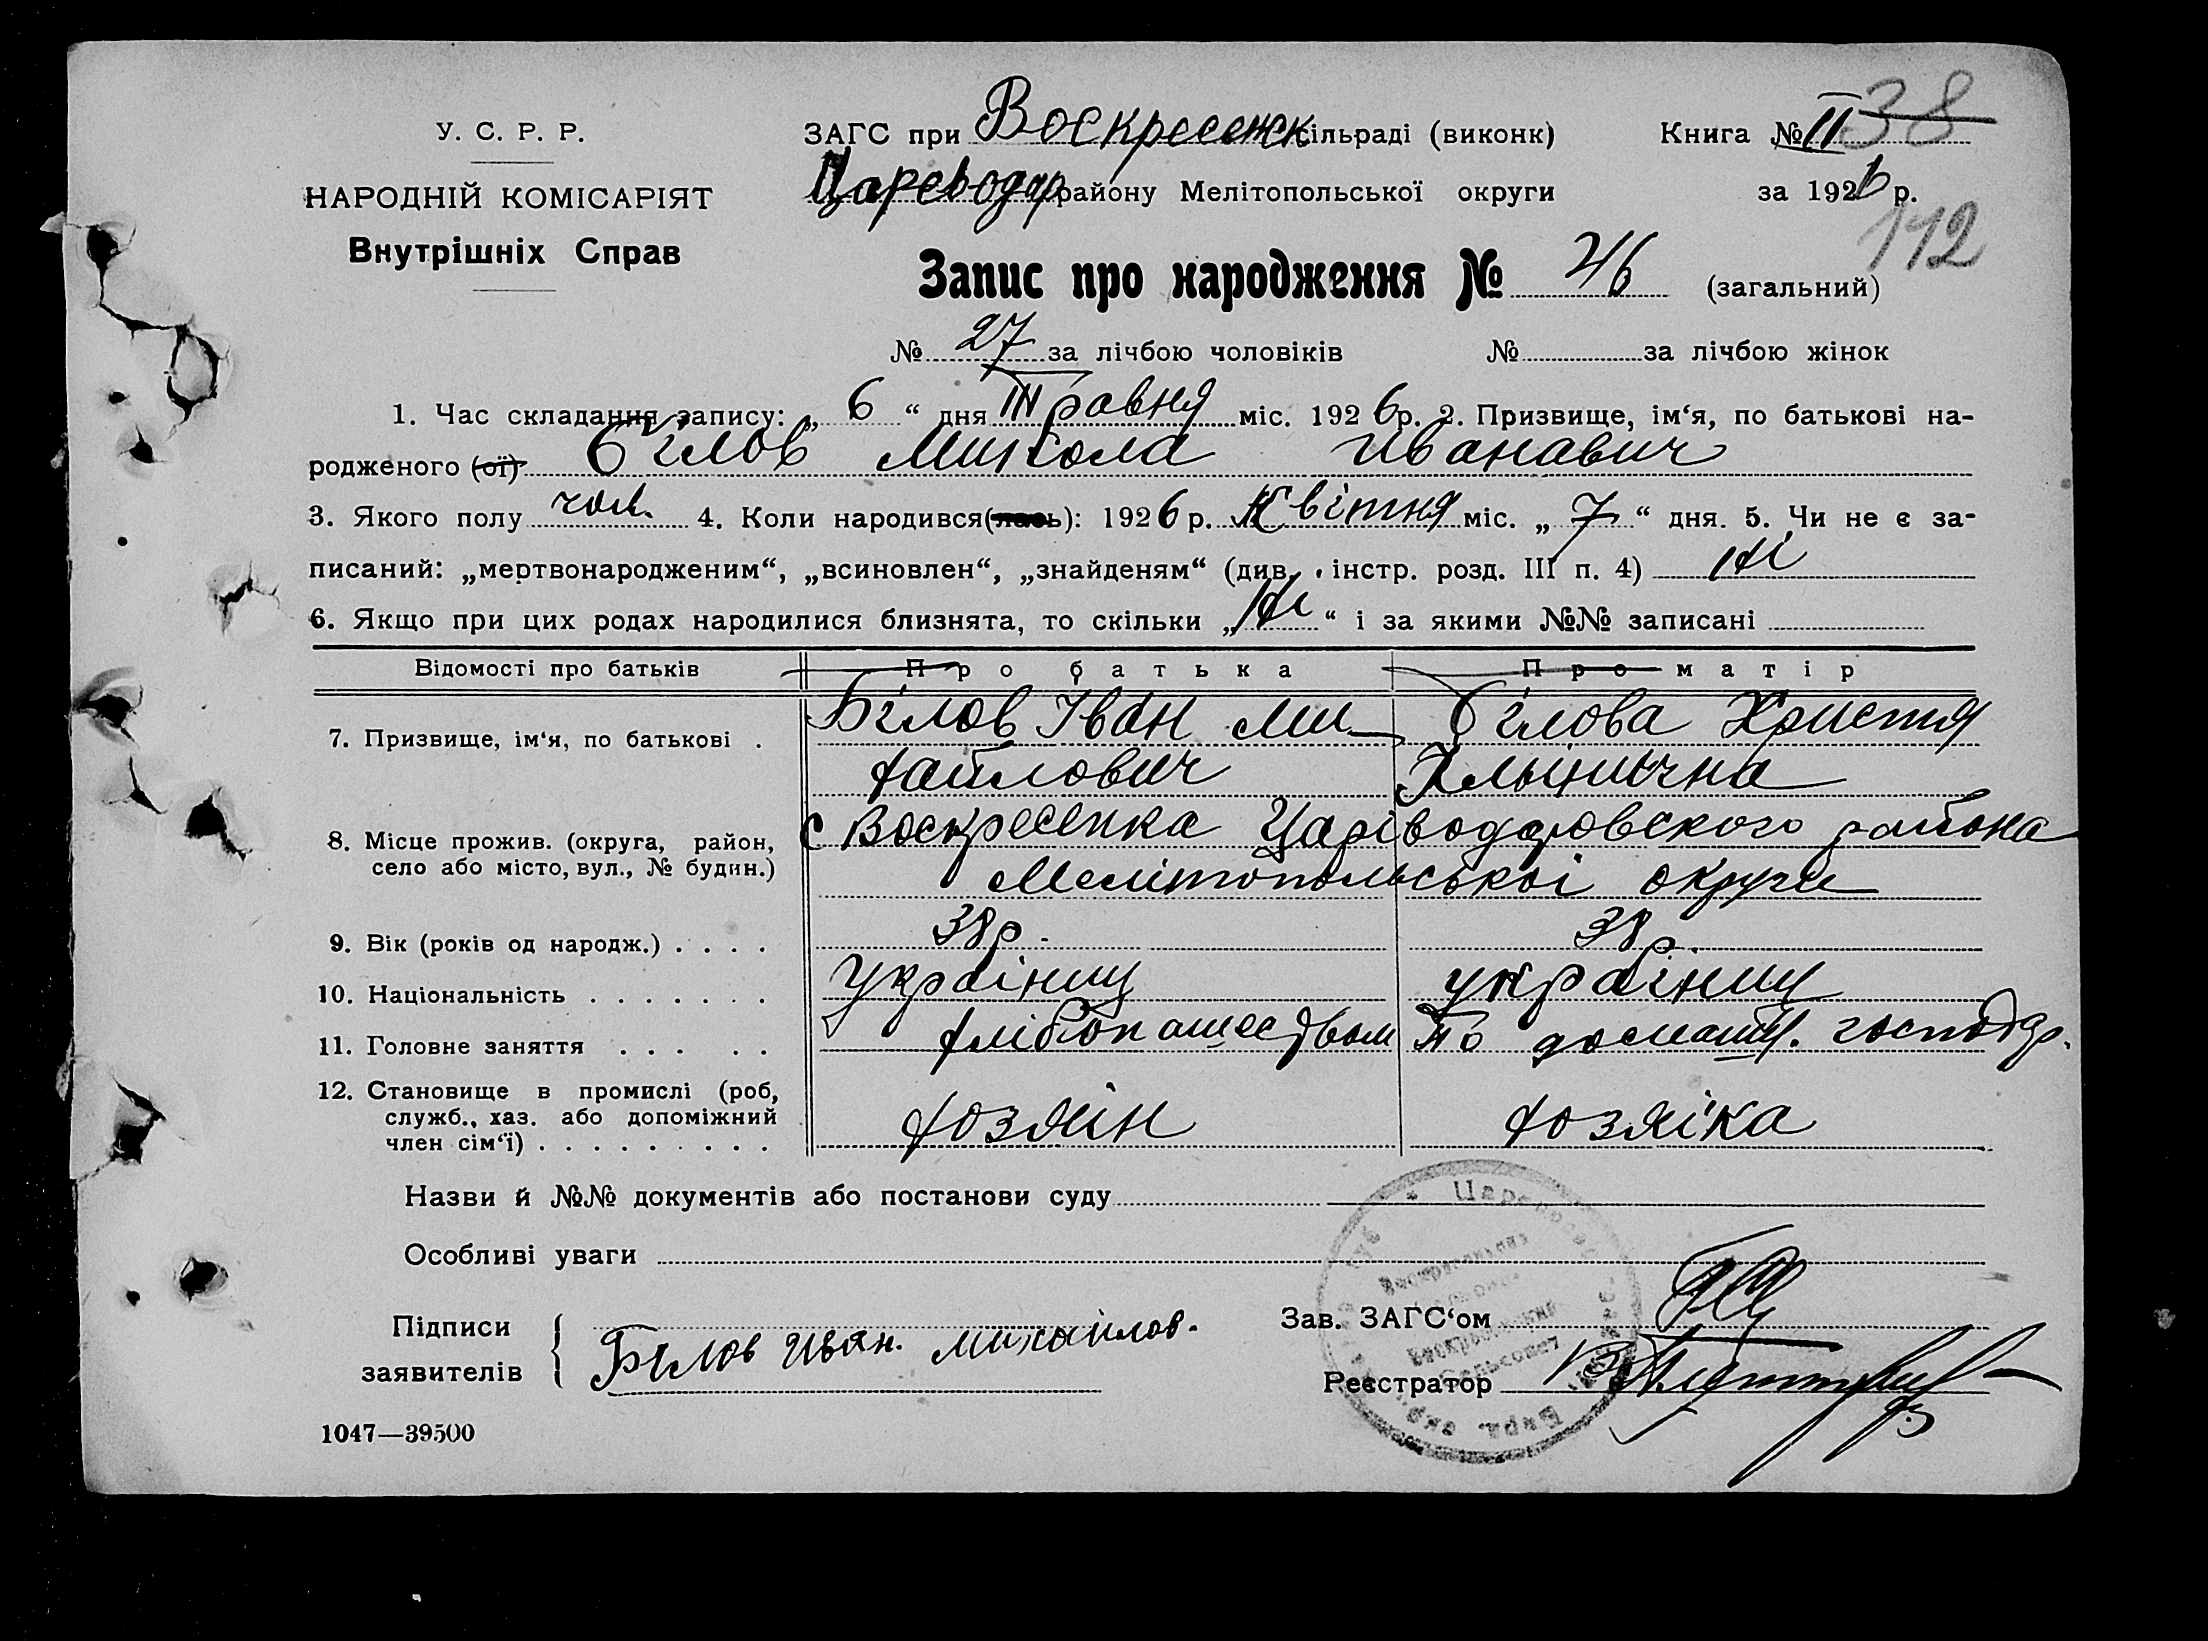 38
У. С. Р. Р.
ЗАГС при Воскресенск сільраді (виконк)
Книга № II
НАРОДНІЙ КОМІСАРІЯТ
Цареводар району Мелітопольської округи
за 1926 р.
Внутрішніх Справ
112
Запис про народження № 46 (загальний)
№ 27 за лічбою чоловіків № за лічбою жінок
1. Час складання запису: „ 6 “ дня Травня міс. 1926 р. 2. Призвище, ім‘я, по батькові на-
родженого (ої) Білов Микола Иванавич
3. Якого полу чол. 4. Коли народився(лась): 1926 р. Квітня міс. „ 7 “ дня. 5. Чи не є за-
писаний: „мертвонародженим“, „всиновлен“, „знайденям“ (див. інстр. розд. III п. 4) Ні
6. Якщо при цих родах народилися близнята, то скільки „ Ні “ і за якими №№ записані
Відомості про батьків Про батька Про матір
7. Призвище, ім‘я, по батькові . Білов Іван Ми- Білова Христя
хайлович
8. Місце прожив. (округа, район, с Воскресенка Царіводаровского района
село або місто, вул., № будин.) Мелітопольськоі округи
9. Вік (років од народж.) . . . . 38 р. 38 р.
10. Національність . . . . . . . украіниц украіниц
11. Головне заняття . . . . . По домашн. господар.
12. Становище в промислі (роб,
служб., хаз. або допоміжний хозяін хозяіка
член сім‘ї) . . . . . . . . .
Назви й №№ документів або постанови суду
Особливі уваги
Підписи
заявителів
Білов Иван. Михайлов.
Зав. ЗАГС‘ом
Реєстратор
1047—39500